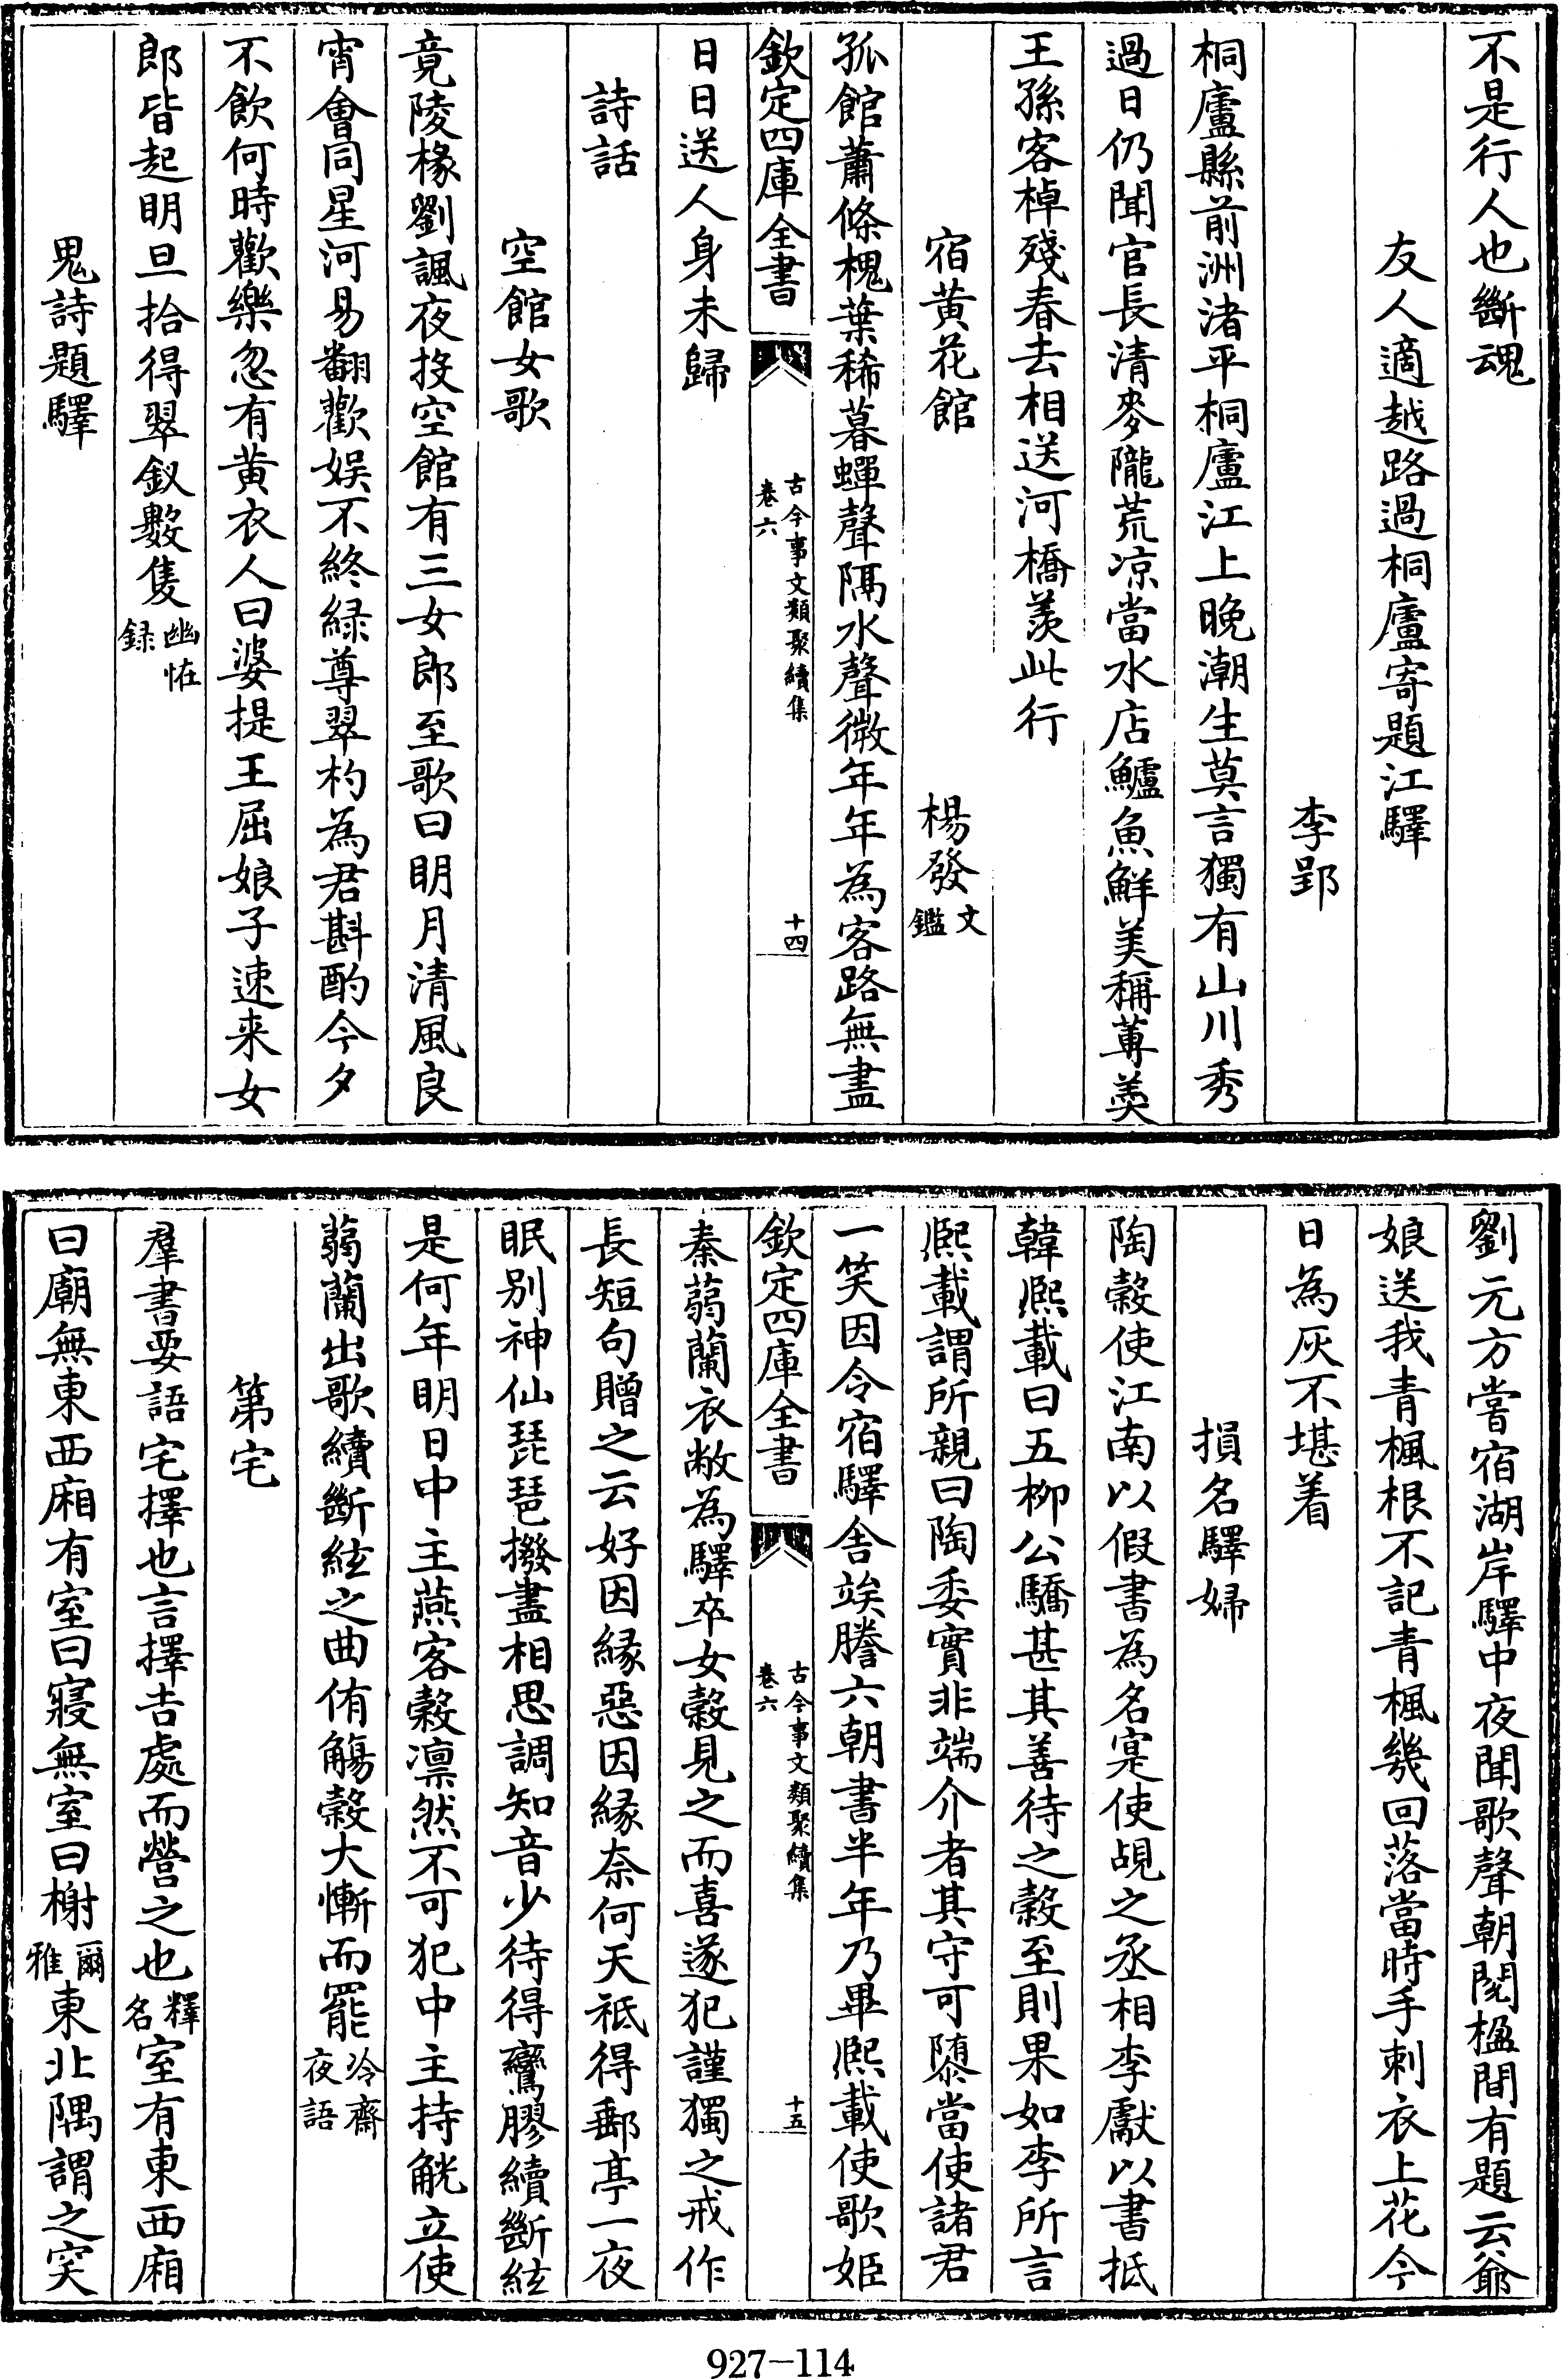 不是行人也斷魂
友人適越路過桐廬寄題江驛
李郢
桐廬縣前洲渚平桐廬江上晚潮生莫言獨有山川秀
過日仍聞官長清麥隴荒凉當水店鱸魚鮮美稱蓴羮
王孫客棹殘春去相送河橋羨此行
宿黄花館　楊發文鑑
孤館蕭條槐葉稀暮蟬聲隔水聲微年年為客路無盡
欽定四庫全書　古今事文類聚續集　卷六　十四
日日送人身未歸
詩話
空館女歌
竟陵椽劉諷夜投空館有三女郎至歌曰明月清風良
宵會同星河易翻歡娱不終緑尊翠杓為君斟酌今夕
不飲何時歡樂忽有黄衣人曰婆提王屈娘子速来女
郎皆起明旦拾得翠釵數隻幽怪録
鬼詩題驛
劉元方嘗宿湖岸驛中夜聞歌聲朝閲楹間有題云爺
娘送我青楓根不記青楓幾回落當時手刺衣上花今
日為灰不堪着
損名驛婦
陶穀使江南以假書為名寔使覘之丞相李獻以書抵
韓熈載曰五柳公驕甚其善待之穀至則果如李所言
熈載謂所親曰陶委實非端介者其守可隳當使諸君
一笑因令宿驛舍竢謄六朝書半年乃畢熈載使歌姬
欽定四庫全書　古今事文類聚續集　卷六　十五
秦蒻蘭衣敝為驛卒女穀見之而喜遂犯謹獨之戒作
長短句贈之云好因縁惡因縁奈何天祇得郵亭一夜
眠别神仙琵琶撥盡相思調知音少待得鸞膠續斷絃
是何年明日中主燕客穀凛然不可犯中主持觥立使
蒻蘭出歌續斷絃之曲侑觴穀大慚而罷冷齋夜語
第宅
羣書要語宅擇也言擇吉處而營之也釋名室有東西廂
曰廟無東西廂有室曰寢無室曰榭爾雅東北隅謂之宎
927-114